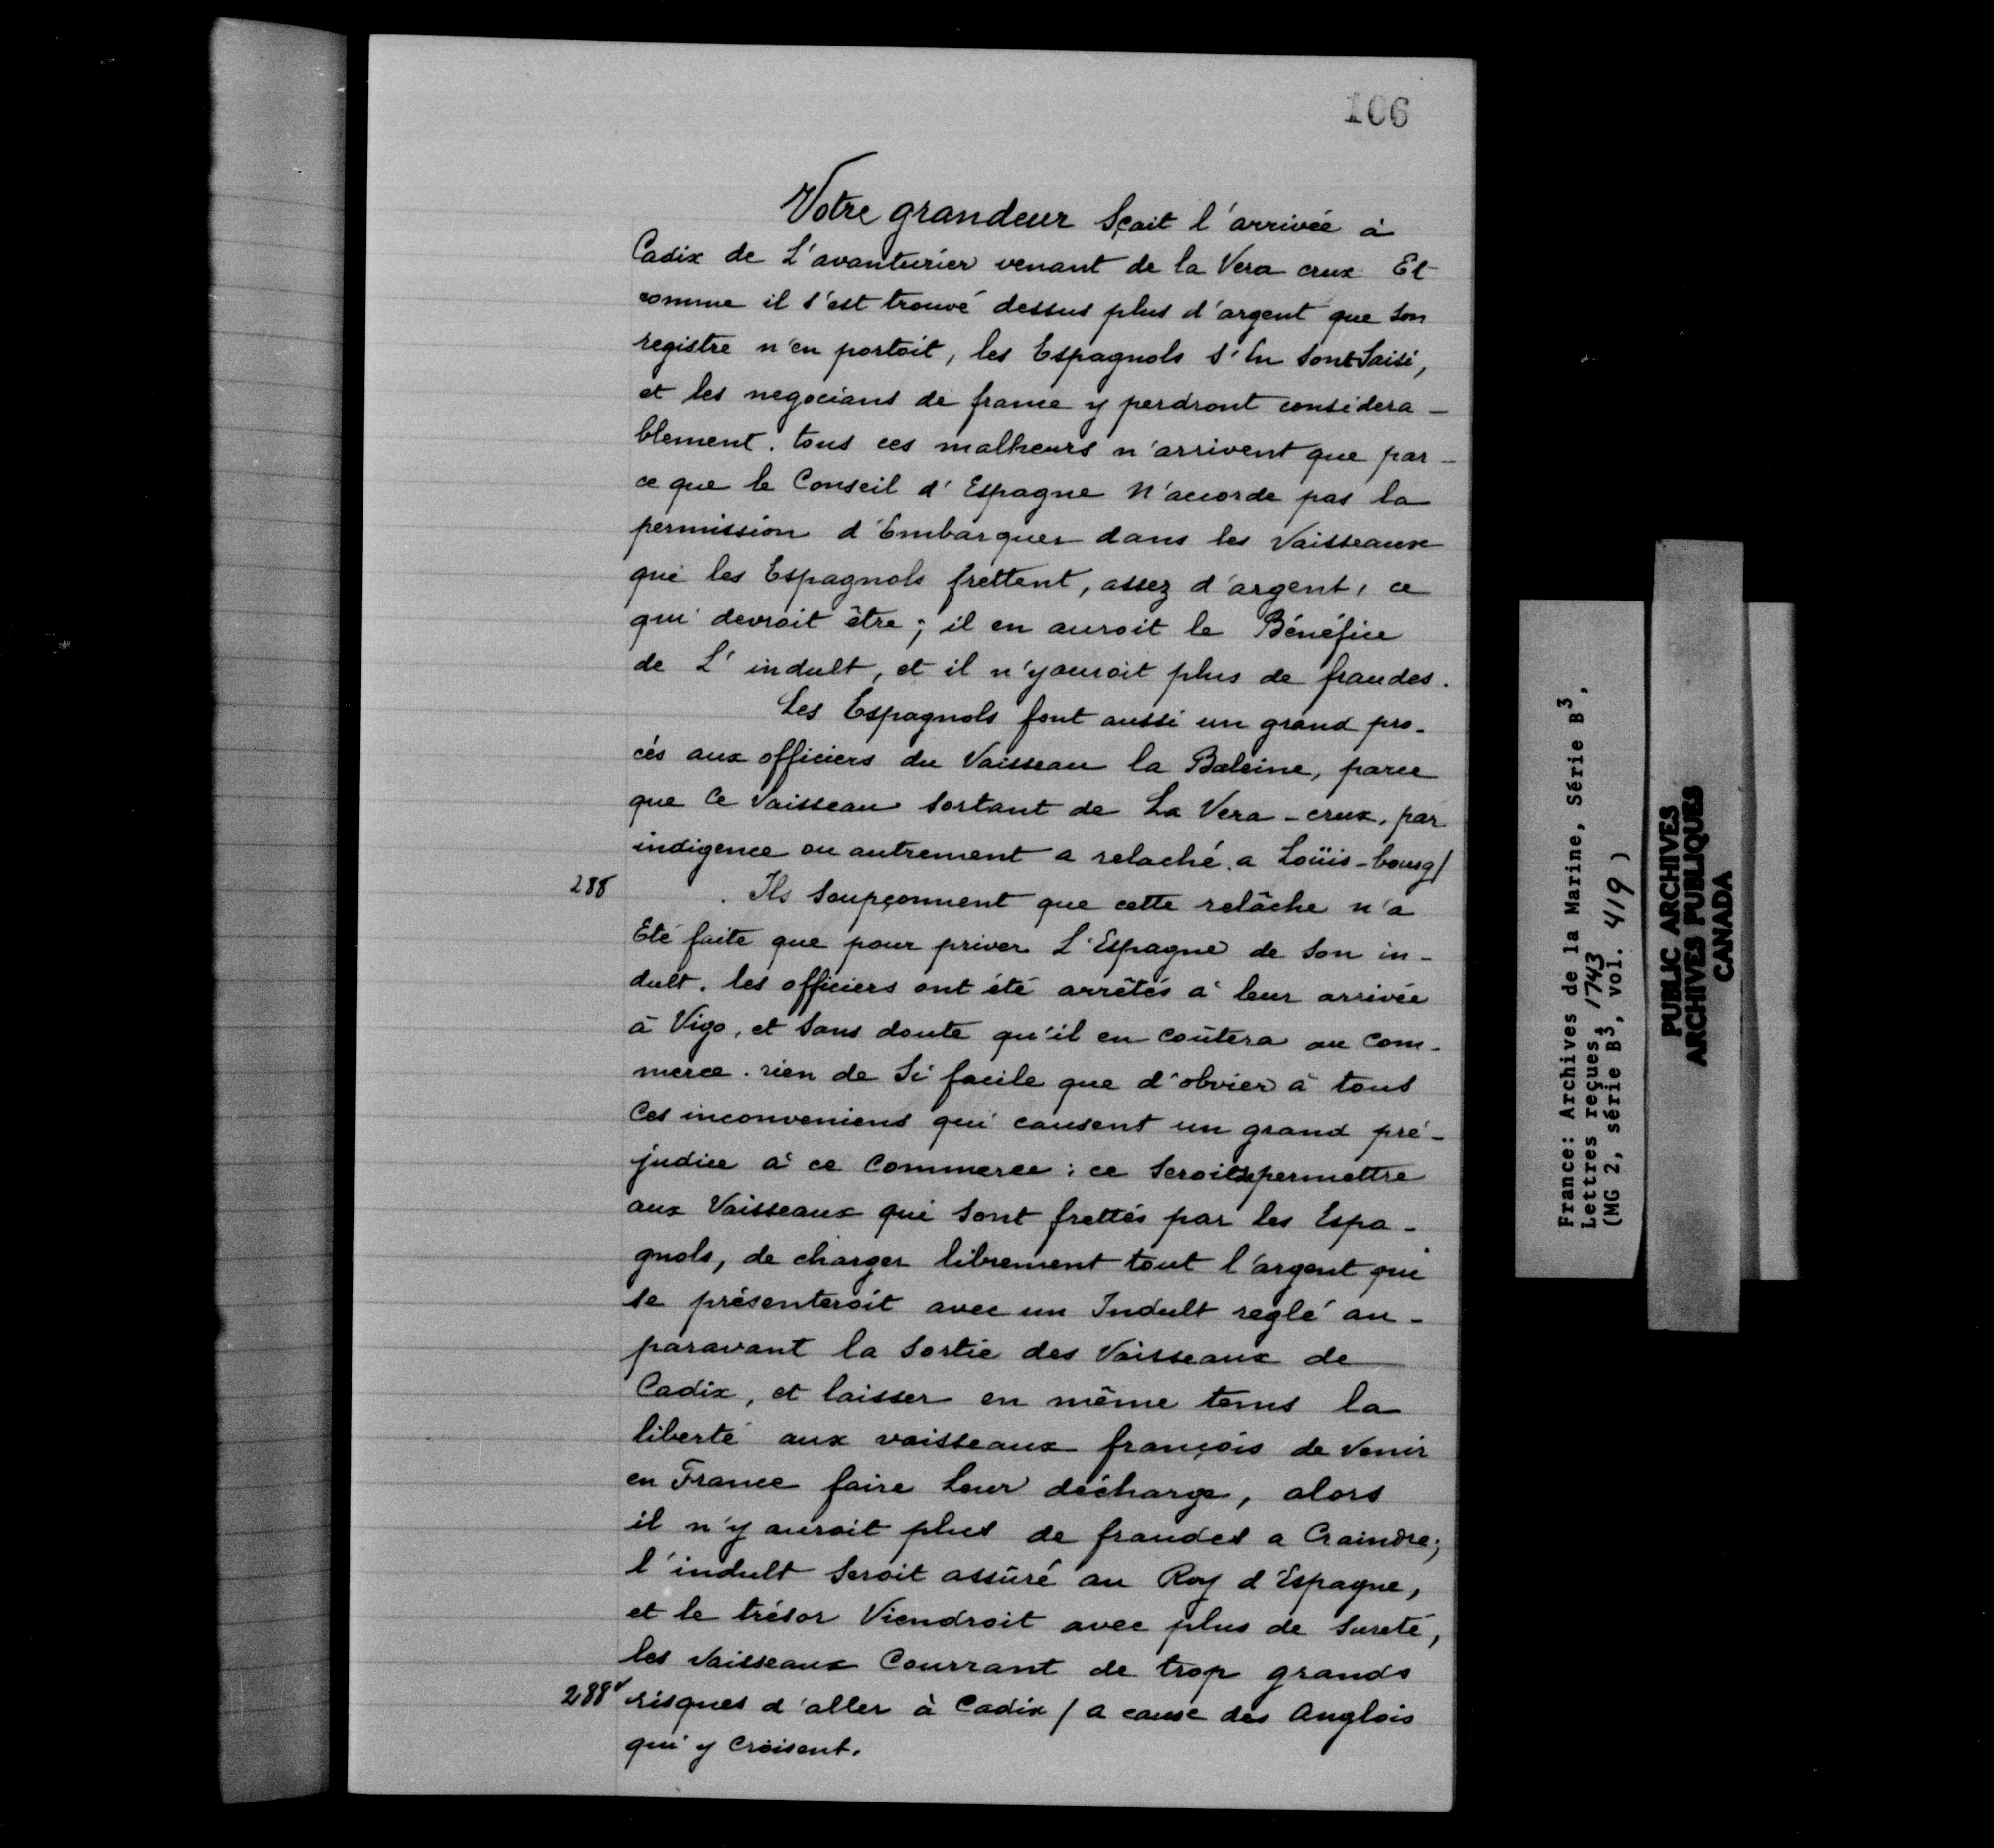 106
Votre grandeur Sçait l'arrivée à
Cadix de L'avanturier venant de la Vera crux. Et
comme il s'est trouvé dessus plus d'argent que Son
registre n'en portoit, les Espagnols s'En Sont Saisi,
et les negocians de france y perdront considera-
blement. tous ces malheurs n'arrivent que par-
ce que le Conseil d'Espagne N'accorde pas la
permission d'Embarquer dans les Vaisseaux
que les Espagnols frettent, assez d'argent, ce
qui devroit être; il en auroit le Bénéfice
de L'indult, et il n'y auroit plus de fraudes.
Les Espagnols font aussi un grand pro-
cés aux officiers du Vaisseau la Baleine, parce
que Ce Vaisseau Sortant de La Vera-crux, par
indigence ou autrement a relaché a Loüis-bourg/
288 . Ils Soupçonnent que cette relâche n'a
Eté faite que pour priver L'Espagne de Son in-
dult. les officiers ont été arrêtés à leur arrivée
à Vigo, et Sans doute qu'il en coûtera au Com-
merce. rien de Si facile que d'obvier à tous
Ces inconveniens qui causent un grand pré-
judice à ce Commerce: ce Seroit de permettre
aux Vaisseaux qui Sont frettés par les Espa-
gnols, de charger librement tout l'argent qui
se présenteroit avec un Indult reglé au-
paravant la Sortie des Vaisseaux de
Cadix, et laisser en même tems la
liberté aux vaisseaux françois de Venir
en France faire Leur décharge, alors
il n'y auroit plus de fraudes a Craindre;
l'indult Seroit assûré au Roy d'Espagne,
et le trésor Viendroit avec plus de Sureté,
les Vaisseaux Courrant de trop grands
288v risques d'aller à Cadix / a cause des Anglois
qui y Croisent.
France: Archives de la Marine, Série B3,
Lettres reçues, 1743
(MG 2, série B3, vol. 419)
PUBLIC ARCHIVES
ARCHIVES PUBLIQUES
CANADA